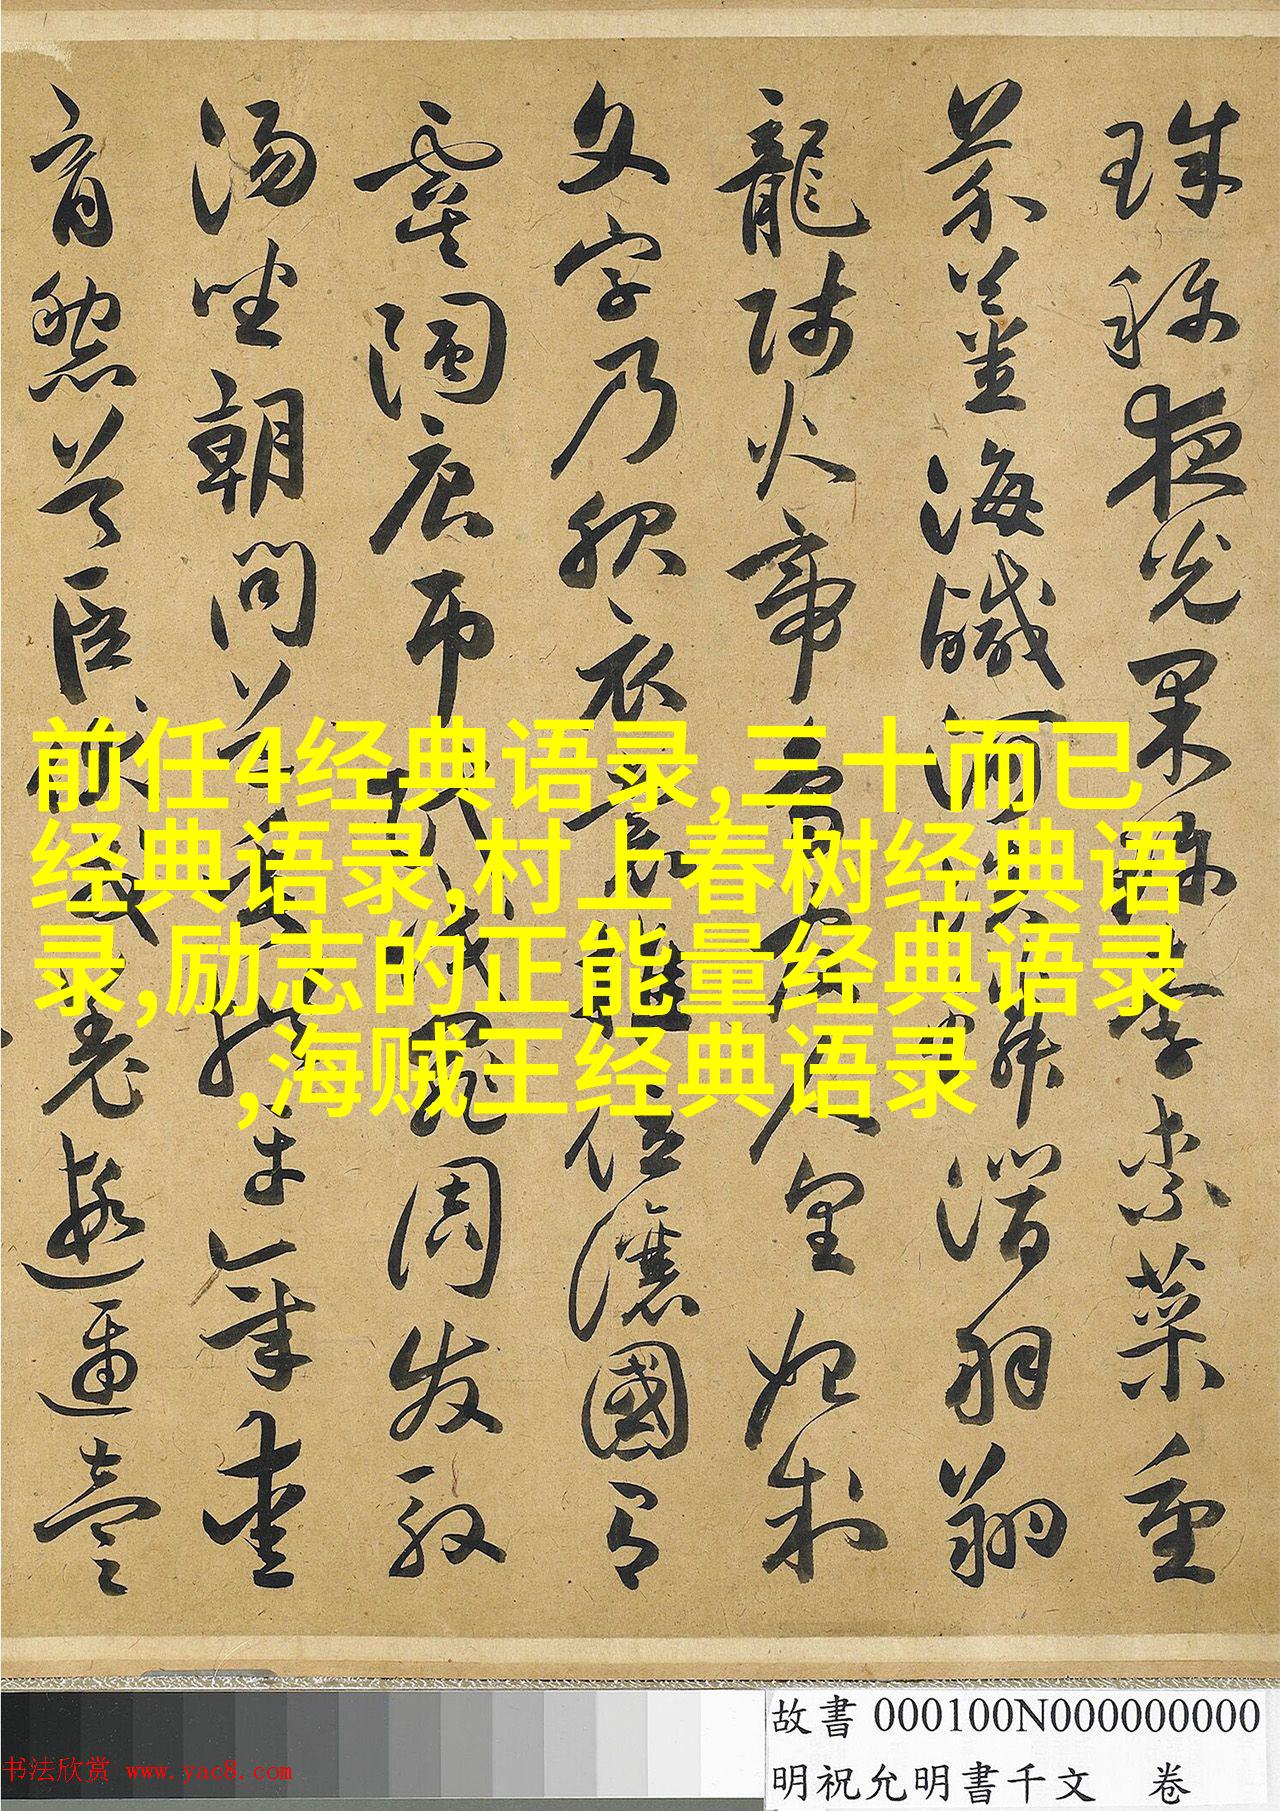 珠稱夜光果珍李柰菜重
芥薑海鹹河淡鱗潛羽翔
龍師火帝鳥官人皇始制
文字乃服衣裳推位讓國有
虞陶唐弔民伐罪周发殷
湯坐朝問道垂拱平章愛
育黎首臣伏戎羌遐邇壹
前任4经典语录,三十而已
经典语录,村上春树经典语
录,励志的正能量经典语录
,海贼王经典语录
故書 000100N000000000
明祝允明書千文 卷
书法欣赏 www.yac8.com